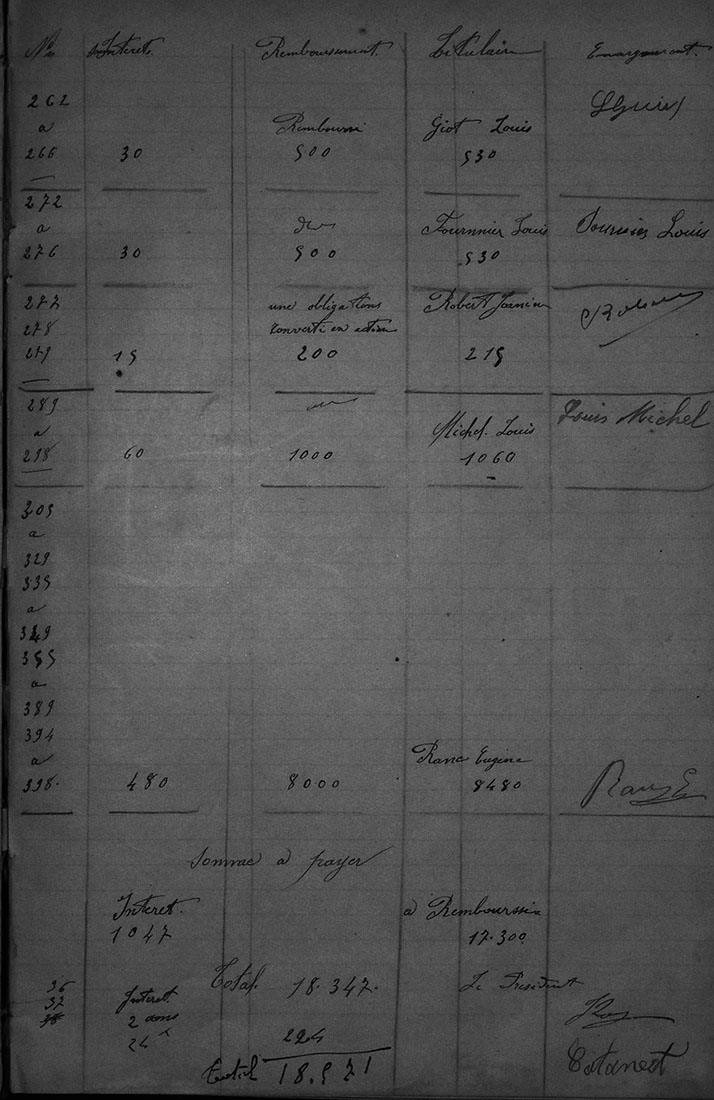 Nos Interets. Remboursement. Titulaire Emargement.
262
a Rembourse Giot Louis LGuiot
266 30 500 530
272
a do Fournnier Louis Fournier Louis
276 30 500 530
277 une obligatons Robert
278 converti en action
279 15 200 215
289 Louis Michel
a Michel Louis
298 60 1000 1060
305
a
329
335
a
349
355
a
389
394
a Ranc Eugene
398. 480 8000 8480 Ranc E
Somme a payer
Interet. a Rembourssir
1047 17.300
36 Total. 18.347. Le President
37 Interet
38 2 ans
24 224
Total 18.571